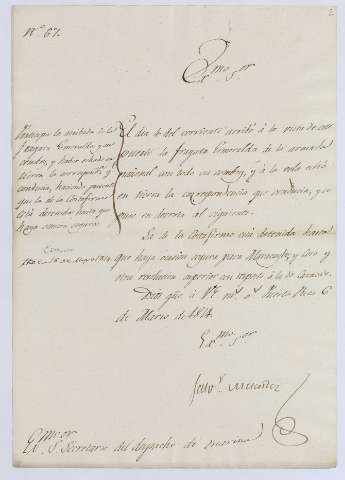 Nº. 67.
2
Exmo Sor
Participa la arribada de la
fragata Esmeralda y su
comboy, y haber echado en
tierra la correspondª que
conducia, haciendo presente
que la de Costafirme
está detenida hasta que
haya ocasion segura.
El dia 4 del corriente arribó á la vista de este
puerto la fragata Esmeralda de la armada
nacional con todo su comboy, y á la vela echó
en tierra la correspondencia que conducia, y
su derrota al siguiente.
La de la Costafirme está detenida hasta
que haya ocasion segura para Maracaybo, y Coro y
otra resolucion superior con respeto á la de Caracas.
Dios gue á VE ms as Puerto Rico 6
de Marzo de 1814.
Exmo Sor
Salvr Melendez
Exmo Sor Secretario del despacho de marina